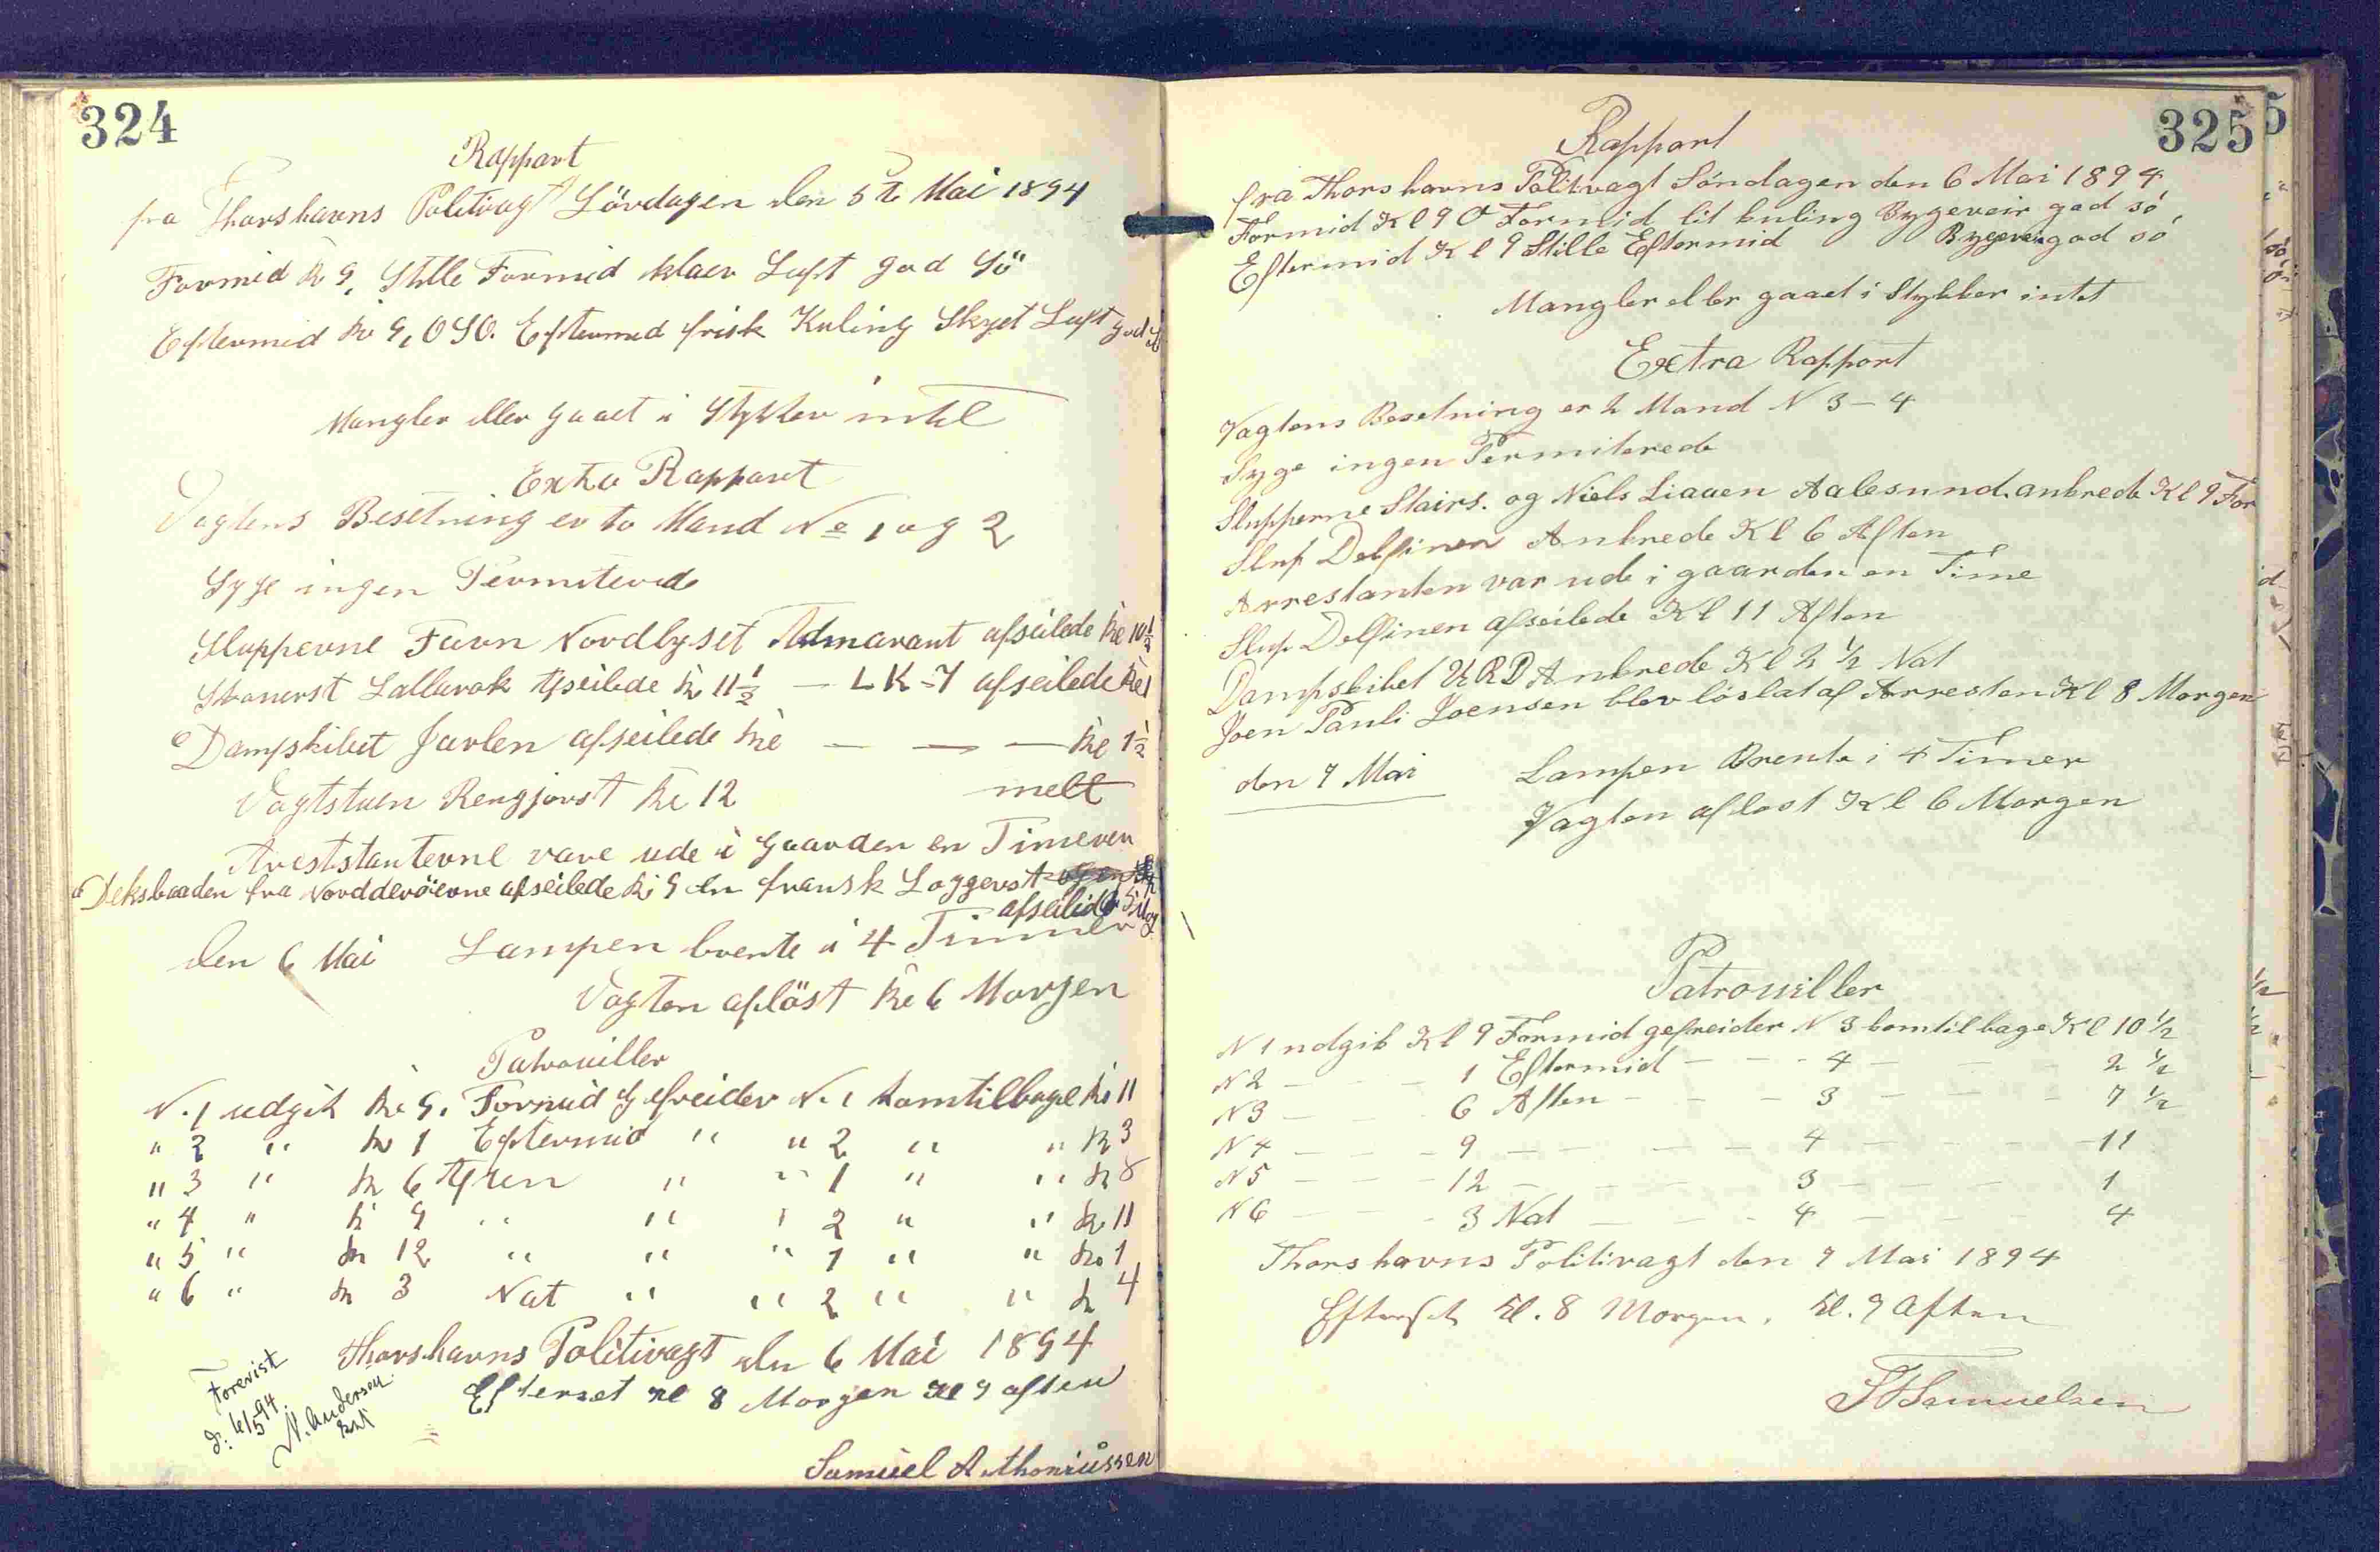 324
Rapport
fra Thorshavns Politivagt Lövdagen den 5te Mai 1894
Formid Kl 9, Stille Formid klaer Luft god Sö
Eftermid Kl 9, OSO. Eftermid frisk Kuling Skyet Luft god Sö
Mangler eller gaaet i Stykker intet
Extra Rapport
Vagtens Besetning er to Mand No 1 og 2
Syge ingen Permiterede
Slupperne Favn Nordlyset Admarant afseilede Kl 10½
Skonerst Lallarok afseilede Kl 11½ — LK-7 afseilede Kl 1
Dampskibet Jarlen afseilede Kl — — — Kl 1½
Vagtstuen Rengjorst Kl 12 melt
Areststanterne vare ude i Gaarden en Time
Deksbaaden fra Nordderöierne afseilede Kl 9 En fransk Loggerst
afseilede 5
den 6 Mai Lampen brente i 4 Timmer
Vagten aflöst Kl 6 Morgen
Patrouiller
N. 1 udgik Kl 9. Formid Gefreider N. 1 komtilbage Kl 11
" 2 " Kl 1 Eftermid " " 2 " " Kl 3
" 3 " Kl 6 Aften " " 1 " " Kl 8
" 4 " Kl 9 " " " 2 " " Kl 11
" 5 " Kl 12 " " " 1 " " Kl 1
" 6 " Kl 3 Nat " " 2 " " Kl 4
Thorshavns Politivagt den 6 Mai 1894
Efterset Kl 8 Morgen Kl 9 aften
Forevist
d. 6/5 94.
N. Andersen
Samuel A. Thoniússen
325
Rapport
fra Thorshavns Politivagt Söndagen den 6 Mai 1894
Formid Kl 9 O Formid lit kuling Bygeveir god só,
Eftermid Kl 9 Stille Eftermid Bygeveir god só
Mangler eller gaaet i Stykker intet
Extra Rapport
Vagtens Besetning er 2 Mand N 3 – 4
Syge ingen Permiterede
Slupperne Stairs. og Niels Liaaen Aalesund ankrede Kl 9 For
Slup Delfinen Ankrede Kl 6 Aften
Arrestanten var ude i gaarden en Time
Slup Delfinen afseilede Kl 11 Aften
Dampskibet URD Ankrede Kl 2 ½ Nat
Joen Pauli Joensen blev löslat af Arresten Kl 8 Morgen
den 7 Mai Lampen Brente i 4 Timer
Vagten aflost Kl 6 Morgen
Patrouiller
N 1 udgik Kl 9 Formid gefreider N 3 komtilbage Kl 10 ½
N 2 — — — 1 Eftermid — — - 4 — — — 2 ½
N 3 — — — 6 Aften — — — 3 — — — 7 ½
N 4 — — — 9 — — — — 4 — — — 11
N 5 — — — 12 — — — 3 — — — 1
N 6 — — — 3 Nat — — — 4 — — — 4
Thorshavns Politivagt den 7 Mai 1894
Efterset Kl. 8 Morgen, Kl. 9 Aften
Samuelsen